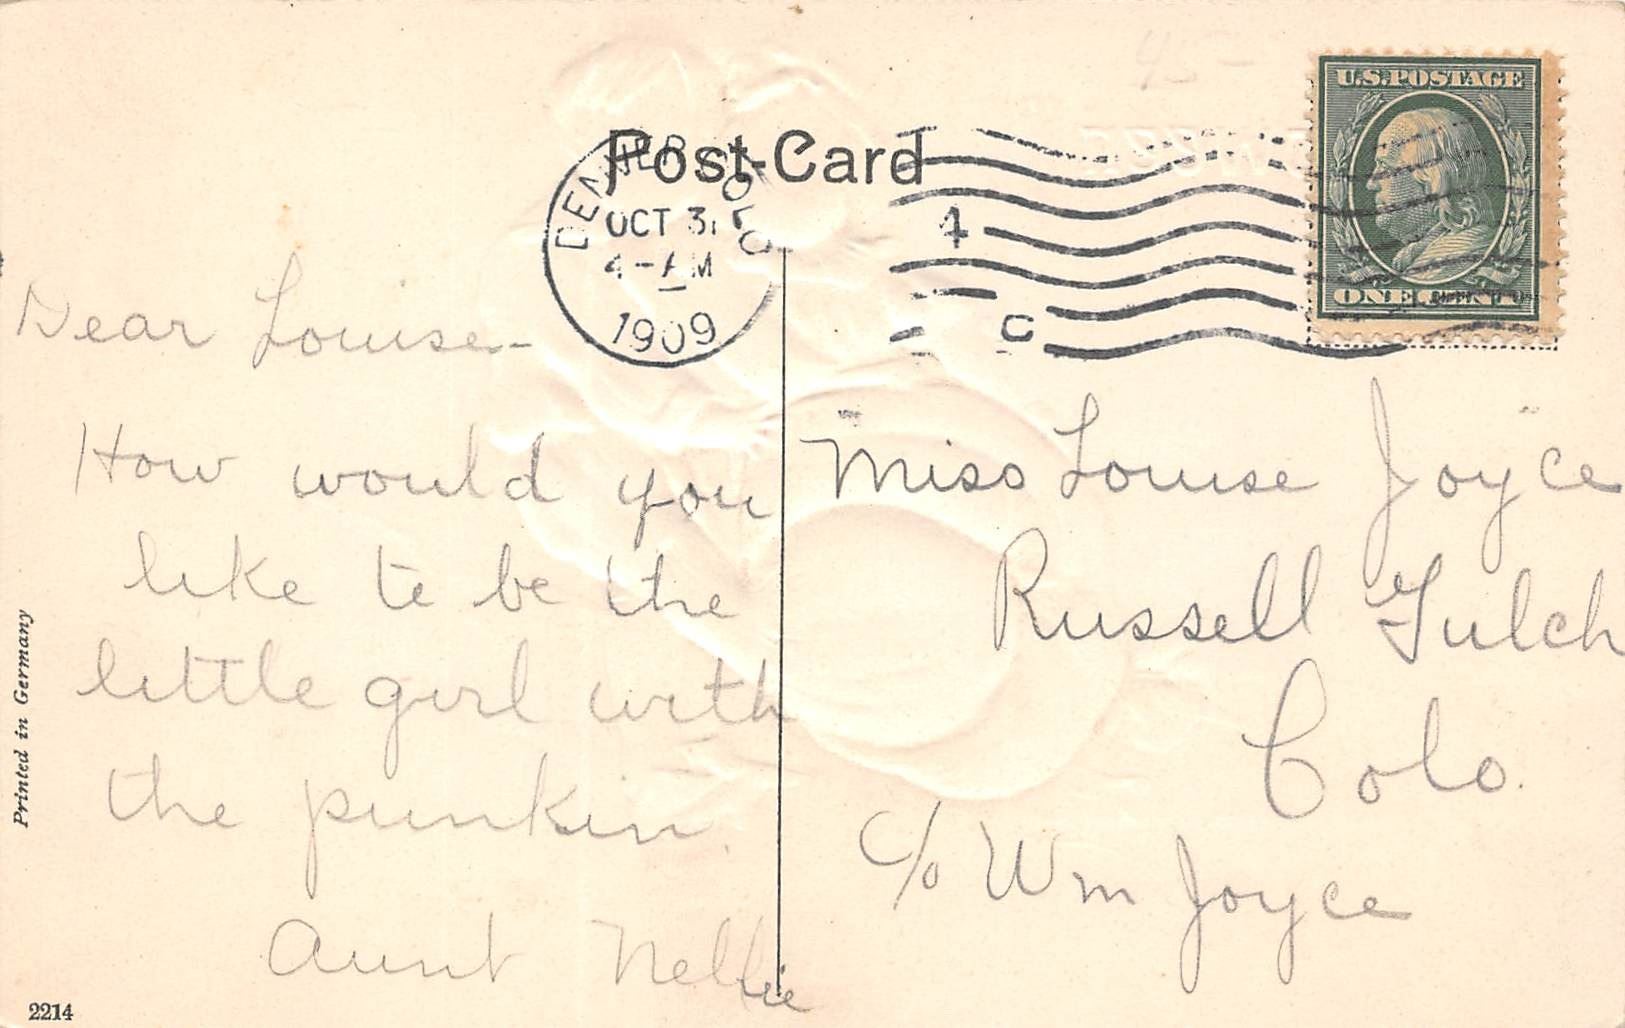 45-
U.S. POSTAGE
Post-Card
DENVER COLO
OCT 31
4-AM
1909
4
C
ONE CENT
Dear Louise-
How would you
like to be the
little girl with
the punkin.
Aunt Nellie
Miss Louise Joyce
Russell Gulch
Colo.
c/o Wm Joyce
Printed in Germany
2214